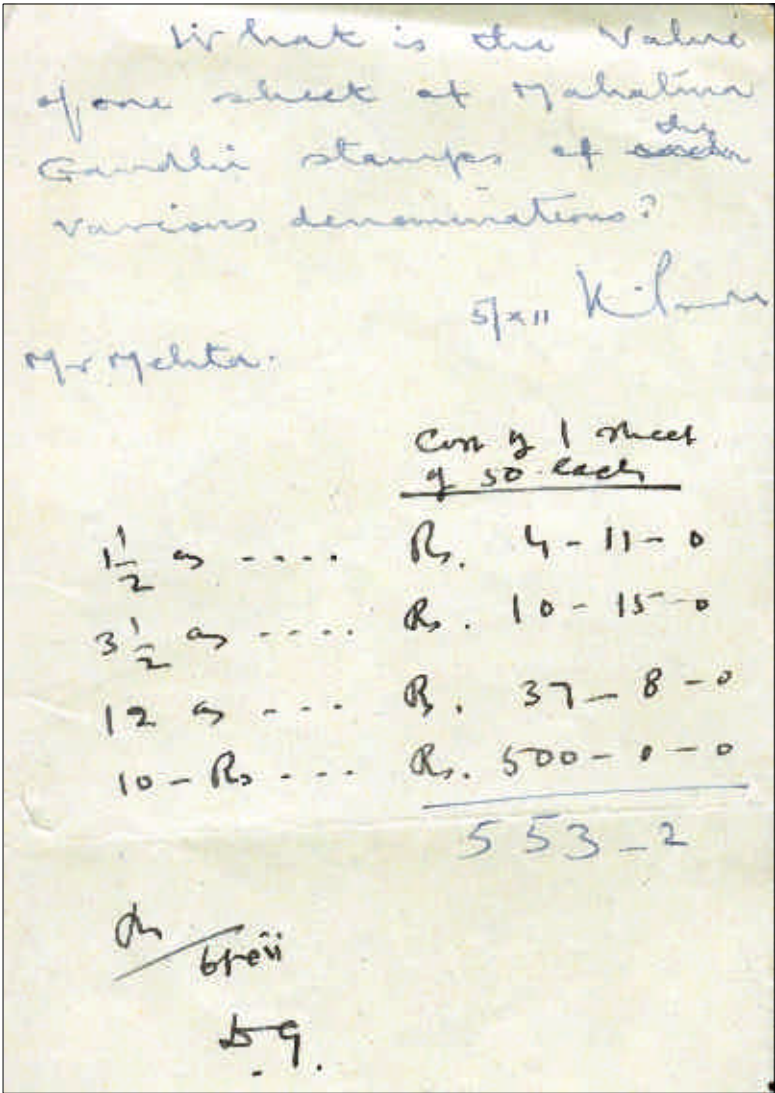 What is the Value
of one sheet of Mahatma
Gandhi stamps of the
various denominations?
5/XII
Mr Mehta.
Cost of 1 sheet
of 50 each
1 1/2 as .... Rs. 4-11-0
3 1/2 as .... Rs. 10-15-0
12 as .... Rs. 37-8-0
10-Rs ... Rs. 500-0-0
553-2
D.G.